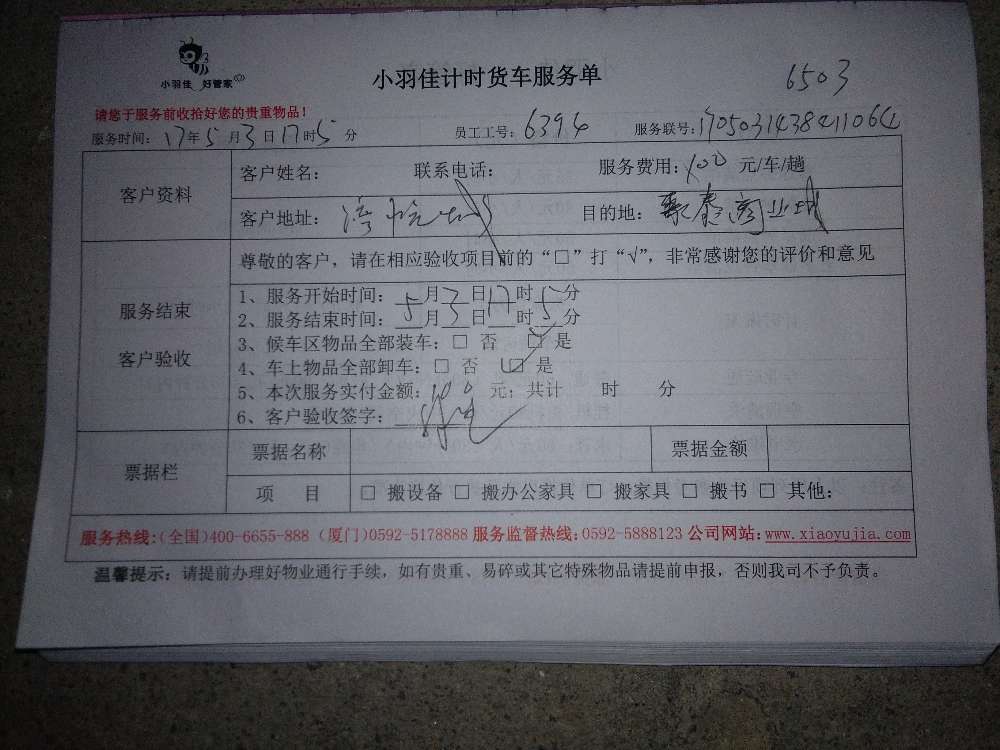 小羽佳 好管家
小羽佳计时货车服务单
6503
请您于服务前收拾好您的贵重物品！
服务时间：17年5月3日17时5分 员工工号：6394 服务联号：
客户资料
客户姓名： 联系电话： 服务费用：100 元/车/趟
客户地址： 目的地：聚泰商业城
尊敬的客户，请在相应验收项目前的“□”打“√”，非常感谢您的评价和意见
服务结束
客户验收
1、服务开始时间：5月3日17时5分
2、服务结束时间：__月3日__时5分
3、候车区物品全部装车：□ 否 ☑ 是
4、车上物品全部卸车：□ 否 ☑ 是
5、本次服务实付金额：100 元；共计 时 分
6、客户验收签字：
票据栏
票据名称 票据金额
项 目 □ 搬设备 □ 搬办公家具 □ 搬家具 □ 搬书 □ 其他：
服务热线：(全国)400-6655-888 (厦门)0592-5178888 服务监督热线：0592-5888123 公司网站：www.xiaoyujia.com
温馨提示：请提前办理好物业通行手续，如有贵重、易碎或其它特殊物品请提前申报，否则我司不予负责。